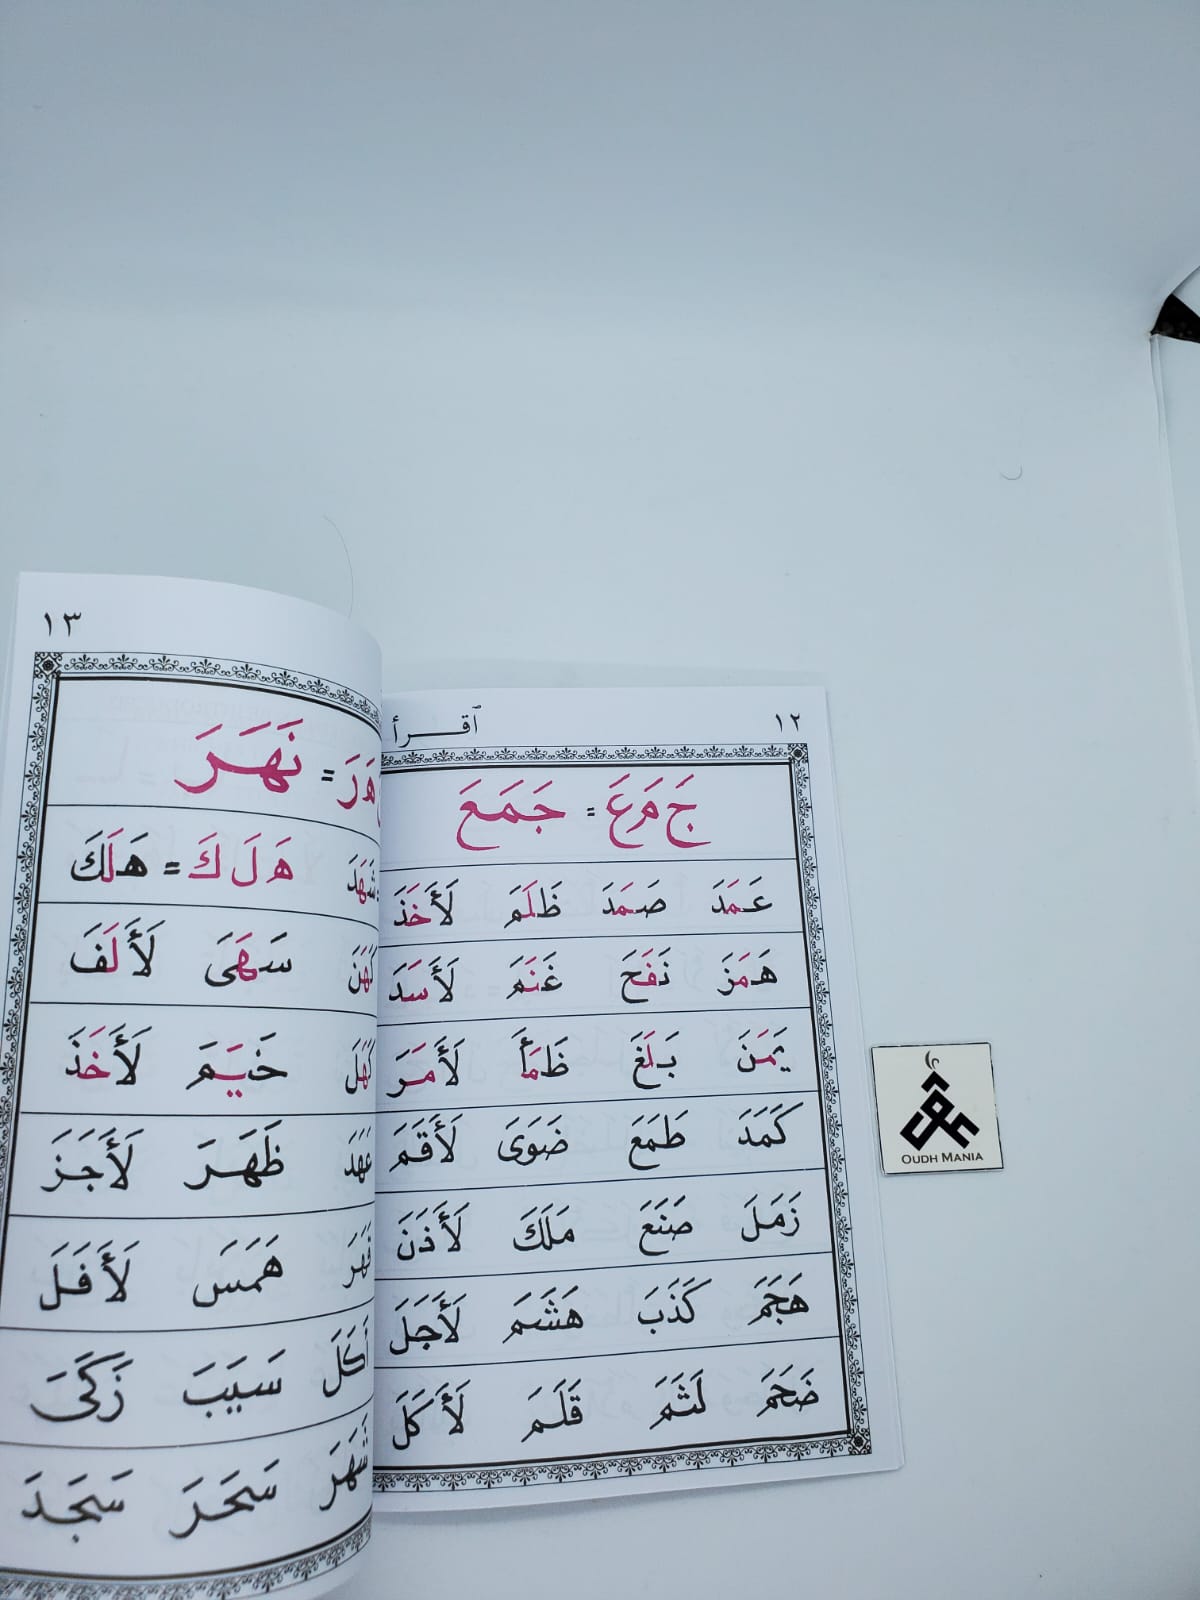 ١٢ ٱقــــرأ
جَ مَ عَ = جَمَعَ
عَمَدَ صَمَدَ ظَلَمَ لَأَخَذَ
هَمَزَ نَفَحَ غَنَمَ لَأَسَدَ
يَمَنَ بَلَغَ ظَمَأَ لَأَمَرَ
كَمَدَ طَمَعَ ضَوَىَ لَأَقَمَ
زَمَلَ صَنَعَ مَلَكَ لَأَذَنَ
هَجَمَ كَذَبَ هَشَمَ لَأَجَلَ
ضَحَمَ لَثَمَ قَلَمَ لَأَكَلَ
١٣
هَ رَ = نَهَرَ
شَهَدَ هَ لَ كَ = هَلَكَ
لَهَنَ سَهَىَ لَأَلَفَ
كَهَلَ خَيَمَ لَأَخَذَ
عَهَدَ ظَهَرَ لَأَجَزَ
قَهَرَ هَمَسَ لَأَفَلَ
أَكَلَ سَيَبَ زَكَىَ
شَهَرَ سَحَرَ سَجَدَ
OUDH MANIA